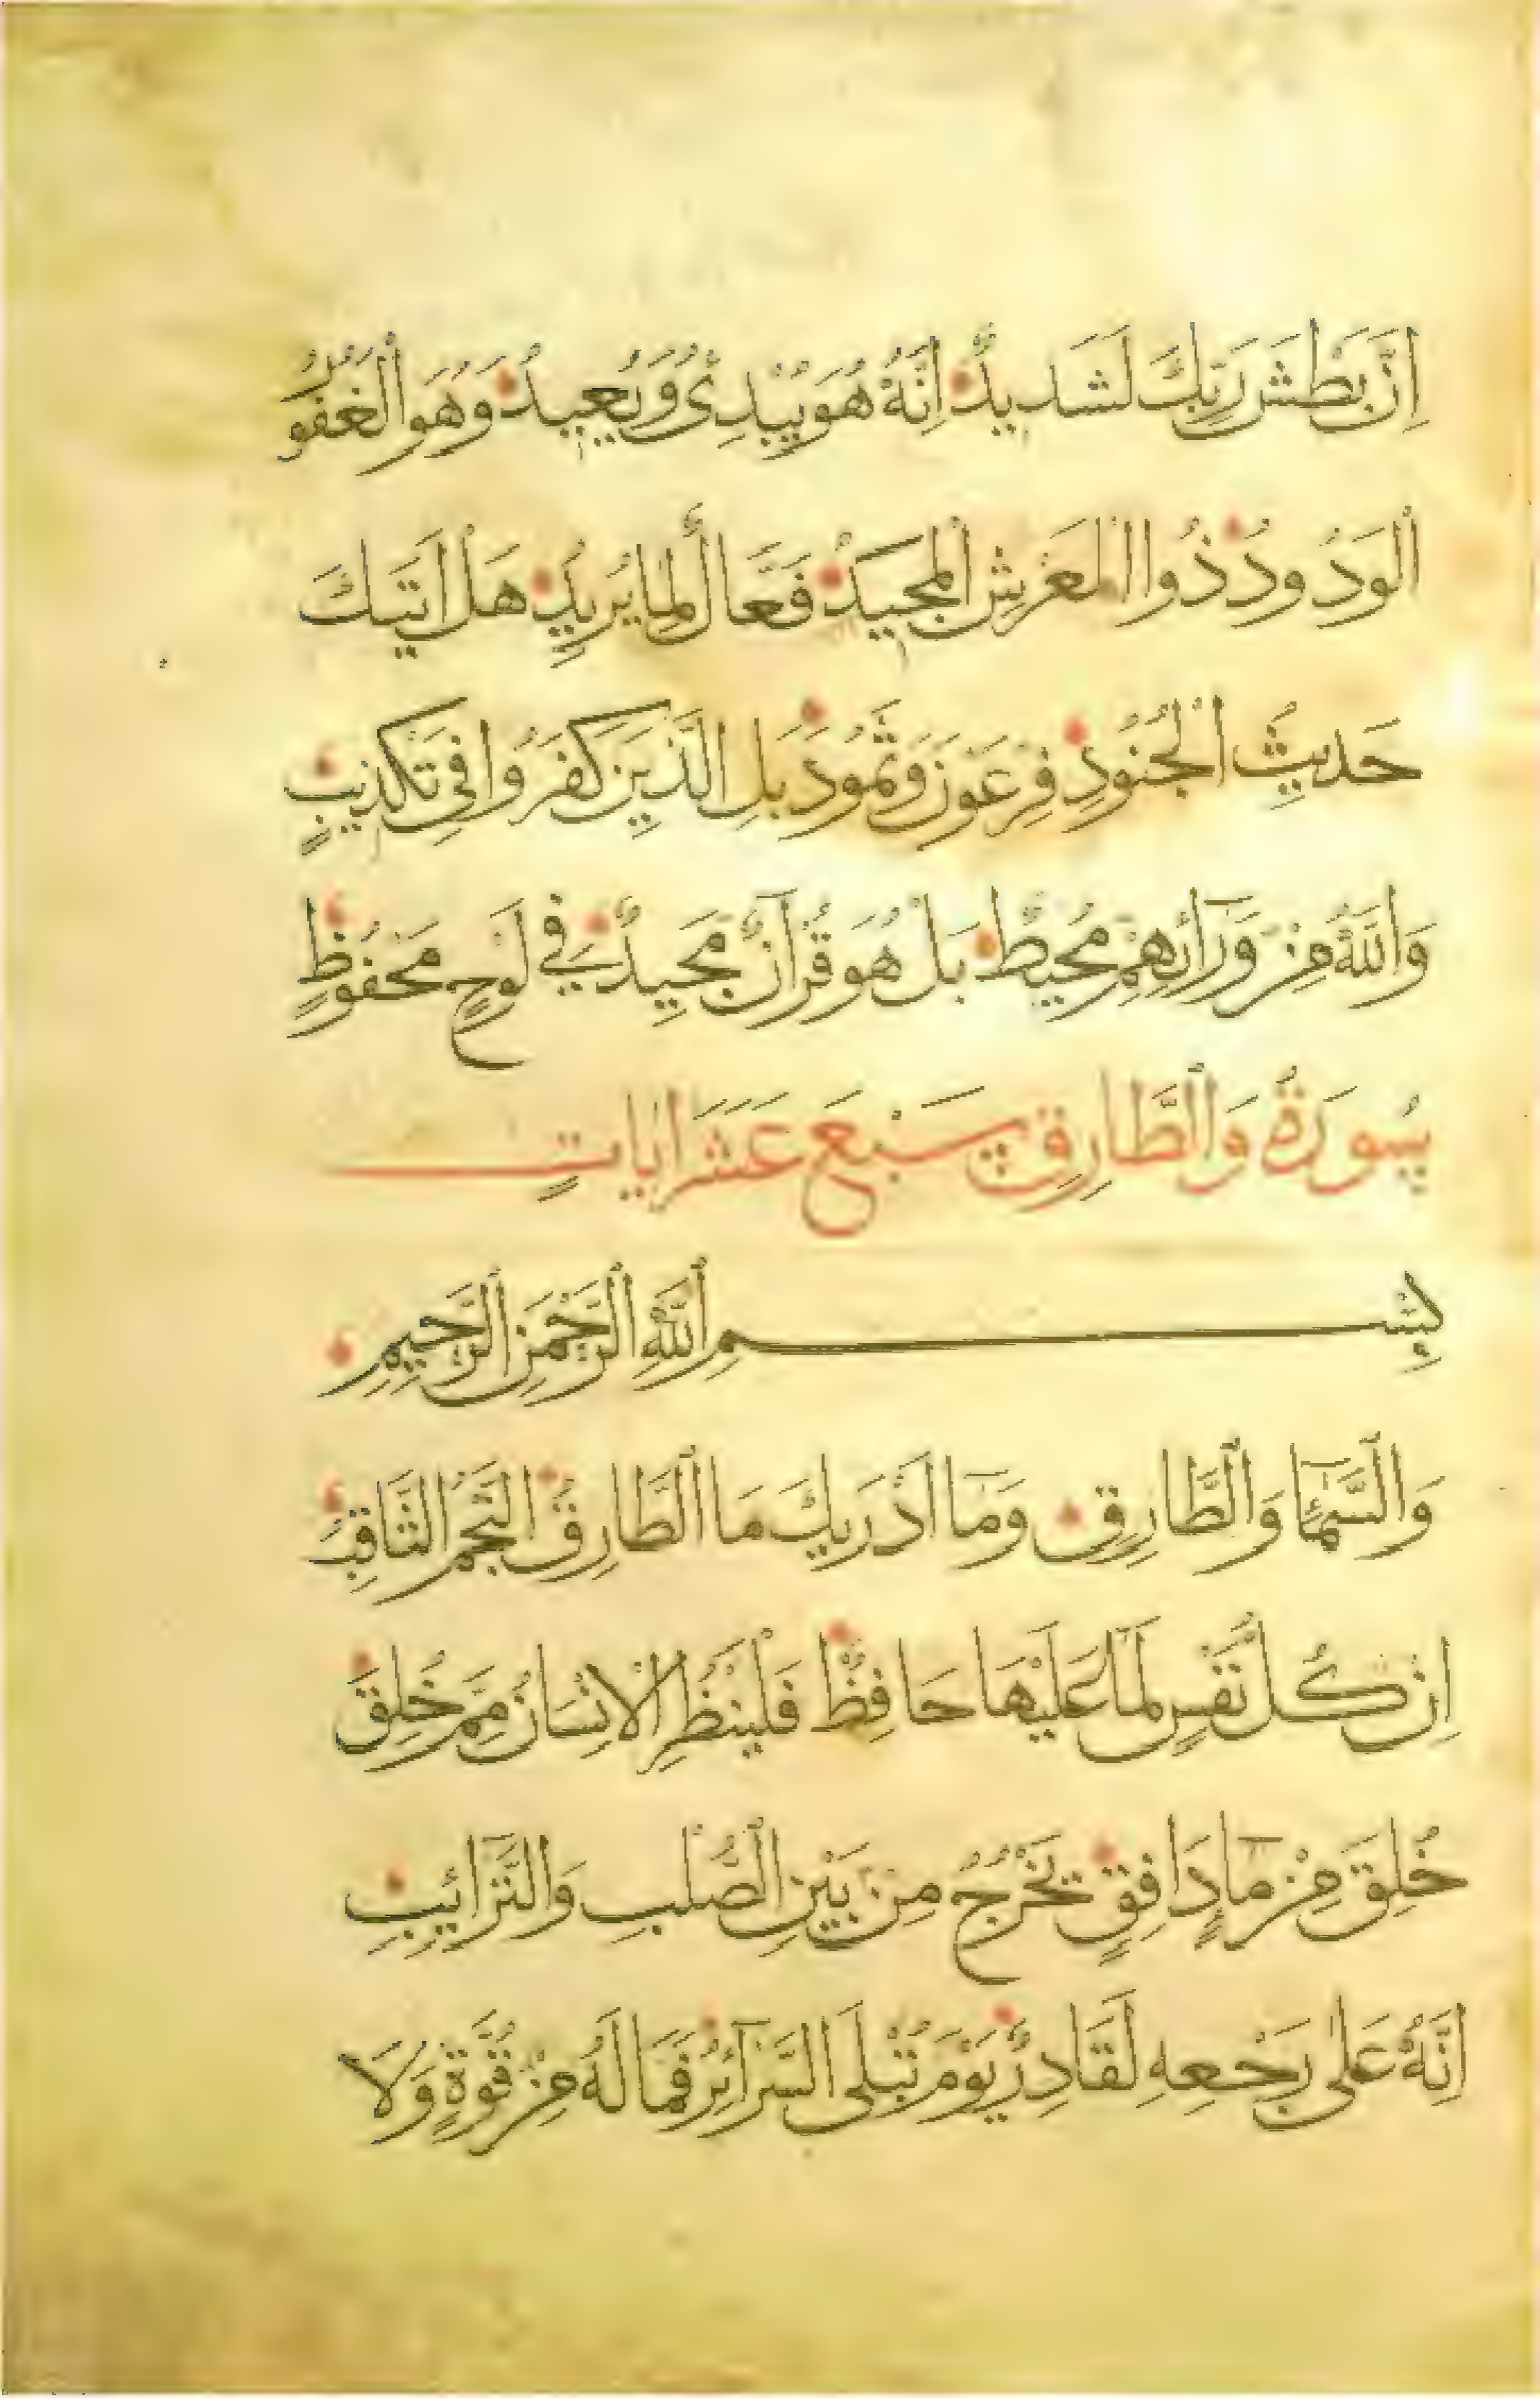 اِنَّ بَطْشَ رَبِّكَ لَشَدِيدٌ اِنَّهُ هُوَ يُبْدِئُ وَيُعِيدُ وَهُوَ الْغَفُورُ
الْوَدُودُ ذُوا الْعَرْشِ الْمَجِيدُ فَعَّالٌ لِمَا يُرِيدُ هَلْ اَتَيكَ
حَدِيثُ الْجُنُودِ فِرْعَوْنَ وَثَمُودَ بَلِ الَّذِينَ كَفَرُوا فِي تَكْذِيبٍ
وَاللَّهُ مِنْ وَرَآئِهِمْ مُحِيطٌ بَلْ هُوَ قُرْآنٌ مَجِيدٌ فِي لَوْحٍ مَحْفُوظٍ
سُورَةُ وَالطَّارِقِ سَبْعَ عَشَرَ اٰيَاتٍ
بِسْمِ اللَّهِ الرَّحْمٰنِ الرَّحِيمِ
وَالسَّمَآءِ وَالطَّارِقِ وَمَآ اَدْرَيكَ مَا الطَّارِقُ النَّجْمُ الثَّاقِبُ
اِنْ كُلُّ نَفْسٍ لَمَّا عَلَيْهَا حَافِظٌ فَلْيَنْظُرِ الْاِنْسَانُ مِمَّ خُلِقَ
خُلِقَ مِنْ مَآءٍ دَافِقٍ يَخْرُجُ مِنْ بَيْنِ الصُّلْبِ وَالتَّرَآئِبِ
اِنَّهُ عَلٰى رَجْعِهِ لَقَادِرٌ يَوْمَ تُبْلَى السَّرَآئِرُ فَمَا لَهُ مِنْ قُوَّةٍ وَلَا